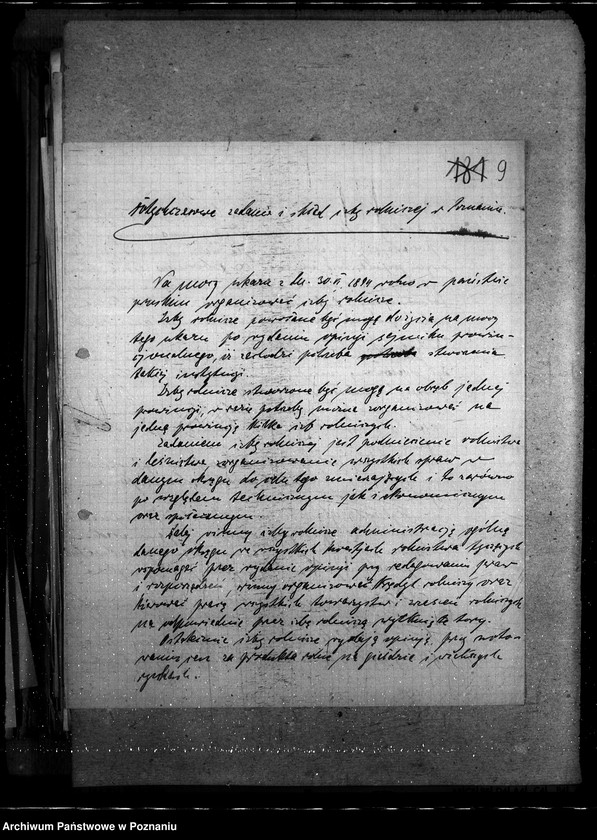 181 9
Dotychczasowe zadania i skład izby rolniczej w Poznaniu.
Na mocy ukazu z dn. 30.VI 1894 wolno w państwie
pruskim organizować izby rolnicze.
Izby rolnicze powołane być mogą do życia na mocy
tego ukazu po wydaniu opinji sejmiku prowin-
cjonalnego, iż zachodzi potrzeba stworzenia
takiej instytucji.
Izby rolnicze stworzone być mogą na obręb jednej
prowincji, w razie potrzeby można zorganizować na
jedną prowincję kilka izb rolniczych.
Zadaniem izby rolniczej jest podniesienie rolnictwa
i leśnictwa zorganizowanie wszystkich spraw w
danym okręgu do celu tego zmierzających i to zarówno
pod względem technicznym jak i ekonomicznym
oraz społecznym.
Dalej winny izby rolnicze administrację ogólną
danego okręgu we wszystkich kwestjach rolnictwa tyczących
wspomagać przez wydanie opinji przy redagowaniu praw
i rozporządzeń, winny organizować kredyt rolniczy oraz
kierować pracą wszystkich towarzystw i zrzeszeń rolniczych
na odpowiednie przez izbę rolniczą wytknięte tory.
Ostatecznie izby rolnicze wydają opinję przy noto-
waniu cen za produkta rolne na giełdzie i większych
rynkach.
Archiwum Państwowe w Poznaniu